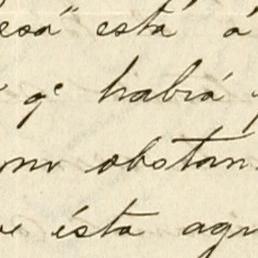 esa" está á
qᵉ habiá
obstan
ésta agu